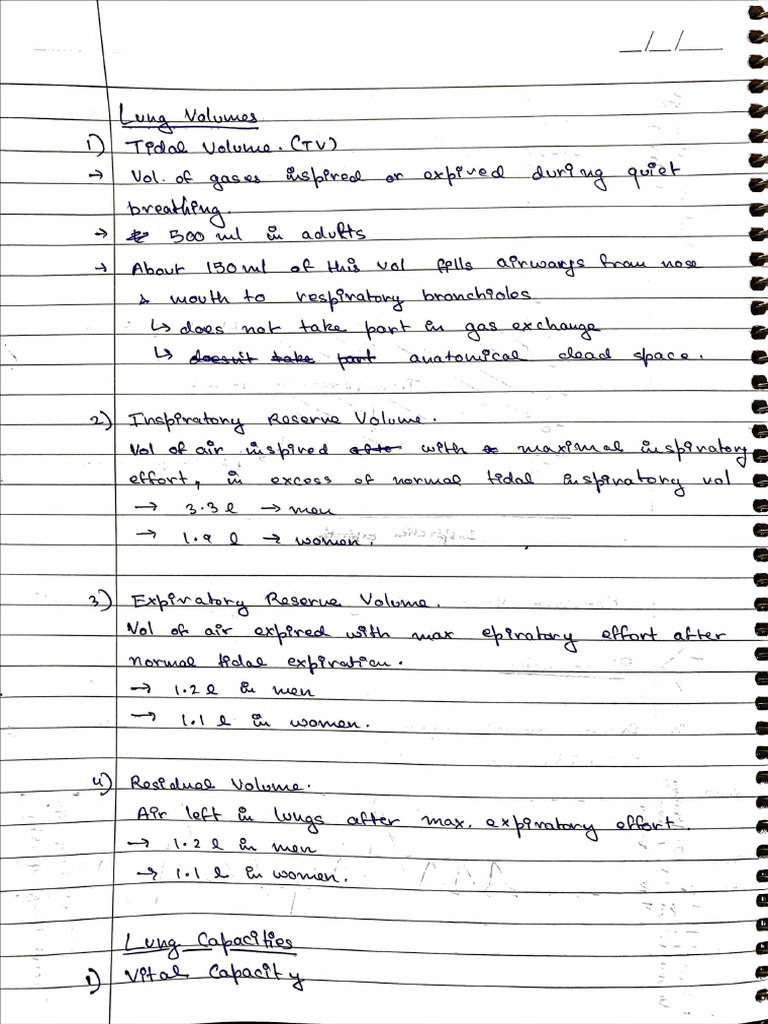 _/_/__
Lung Volumes
1) Tidal Volume. (TV)
→ Vol. of gases inspired or expired during quiet
breathing.
→ 500 ml in adults
→ About 150 ml of this vol fills airways from nose
& mouth to respiratory bronchioles
↳ does not take part in gas exchange
↳ doesn't take part anatomical dead space.
2) Inspiratory Reserve Volume.
Vol of air inspired after with maximal inspiratory
effort, in excess of normal tidal inspiratory vol
→ 3.3 l → men
→ 1.9 l → women.
3) Expiratory Reserve Volume.
Vol of air expired with max epiratory effort after
normal tidal expiration.
→ 1.2 l in men
→ 1.1 l in women.
4) Residual Volume.
Air left in lungs after max. expiratory effort.
→ 1.2 l in men
→ 1.1 l in women.
Lung Capacities
1) Vital Capacity